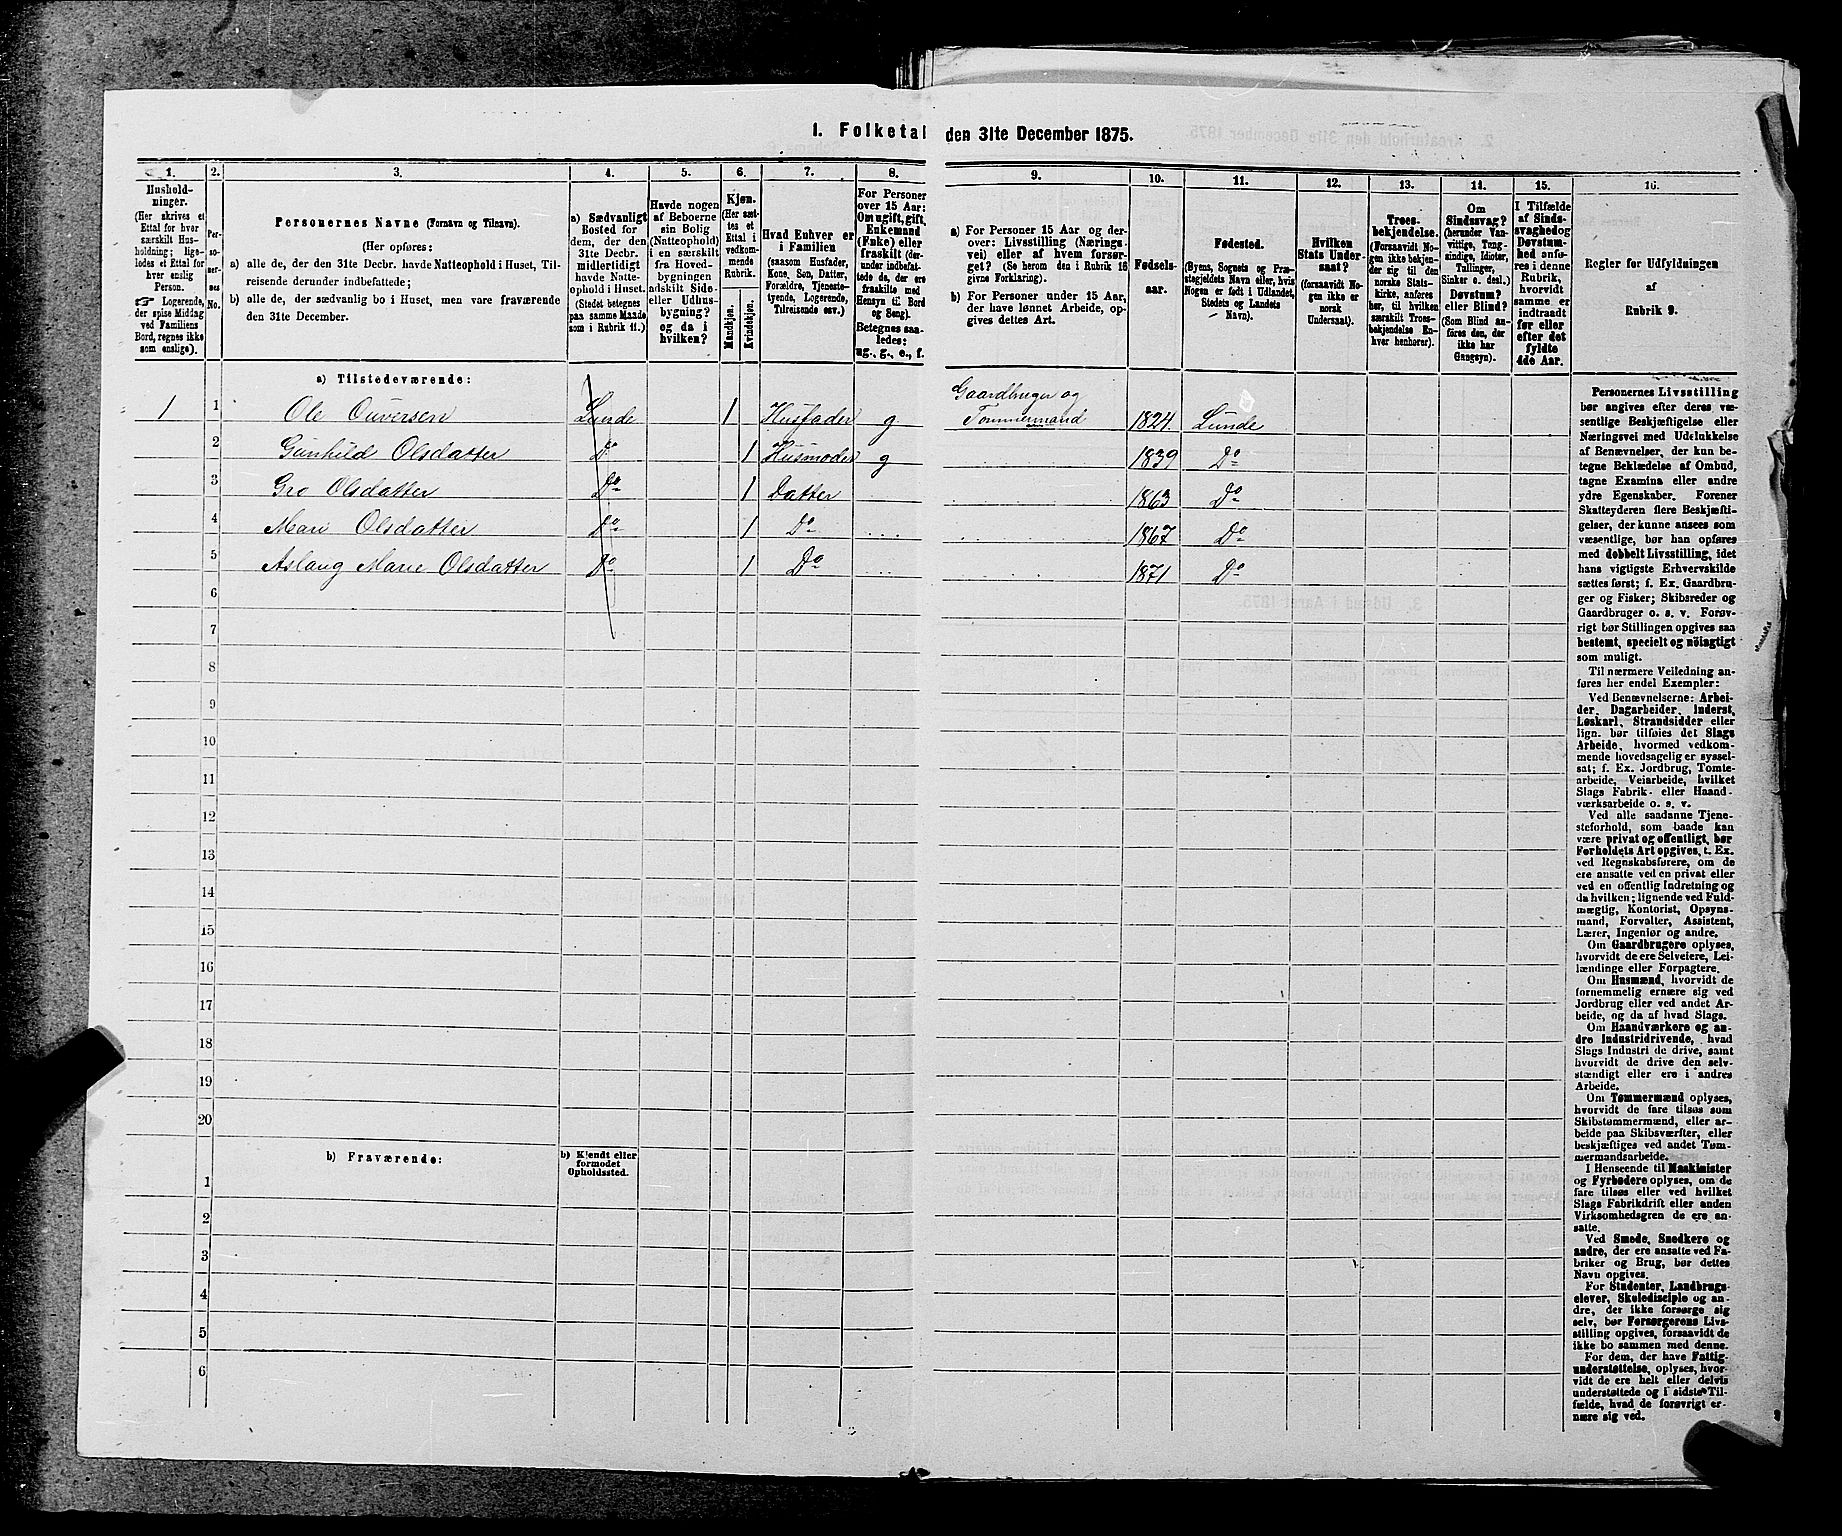 1. Folketal den 31te December 1875.
1.
2.
3.
4.
5.
6.
7.
8.
9.
10.
11.
12.
13.
14.
15.
16.
Hushold-
ninger.
(Her skrives et
Ettal for hver
særskilt Hus-
holdning; lige-
ledes et Ettal for
hver enslig
Person.
☞ Logerende,
der spise Middag
ved Familiens
Bord, regnes ikke
som enslige).
Per-
so-
ner-
nes
No.
Personernes Navne (Fornavn og Tilnavn).
(Her opføres:
a) alle de, der den 31te Decbr. havde Natteophold i Huset, Til-
reisende derunder indbefattede;
b) alle de, der sædvanlig bo i Huset, men vare fraværende
den 31te December.
a) Sædvanligt
Bosted for
dem, der den
31te Decbr.
midlertidigt
havde Natte-
ophold i Huset.
(Stedet betegnes
paa samme Maade
som i Rubrik 11.)
Havde nogen
af Beboerne
sin Bolig
(Natteophold)
i en særskilt
fra Hoved-
bygningen
adskilt Side-
eller Udhus-
bygning?
og da i
hvilken?
Kjøn.
(Her sæt-
tes et
Ettal i
vedkom-
mende
Rubrik.
Mandkjøn.
Kvindekjøn.
Hvad Enhver er
i Familien
(saasom Husfader,
Kone, Søn, Datter,
Forældre, Tjeneste-
tyende, Logerende,
Tilreisende osv.)
For Personer
over 15 Aar:
Om ugift, gift,
Enkemand
(Enke) eller
fraskilt (der-
under indbefat-
tede da, der ere
fraskilte med
Hensyn til Bord
og Seng).
Betegnes saa-
ledes:
ug., g., e., f.
a) For Personer 15 Aar og der-
over: Livsstilling (Nærings-
vei) eller af hvem forsør-
get? (Se herom den i Rubrik 16
givne Forklaring).
b) For Personer under 15 Aar,
der have lønnet Arbeide, op-
gives dettes Art.
Fødsels-
aar.
Fødested.
(Byens, Sognets og Præ-
stegjeldets Navn eller, hvis
Nogen er født i Udlandet,
Stedets og Landets
Navn).
Hvilken
Stats Under-
saat?
(forsaavidt No-
gen ikke er
norsk
Undersaat).
Troes-
bekjendelse.
(Forsaavidt No-
gen ikke bekjen-
der sig til den
norske Stats-
kirke, anføres
her, til hvilken
særskilt Troes-
bekjendelse En-
hver henhører).
Om
Sindssvag?
(herunder Van-
vittige, Tung-
sindige, Idioter,
Tullinger,
Sinker o. desl.)
Døvstum?
eller Blind?
(Som Blind an-
føres den, der
ikke har
Gangsyn).
I Tilfælde
af Sinds-
svaghed og
Døvstum-
hed anfø-
res i denne
Rubrik,
hvorvidt
samme er
indtraadt
før eller
efter det
fyldte
4de Aar.
Regler for Udfyldningen
af
Rubrik 9.
a) Tilstedeværende:
1 1 Ole Ouversen Lunde 1 Husfader g Gaardbruger og
Tømmermand 1824 Lunde
2 Gunhild Olsdatter Do 1 Husmoder g 1839 Do
3 Gro Olsdatter Do 1 Datter 1863 Do
4 Mari Olsdatter Do 1 Do 1867 Do
5 Aslaug Marie Olsdatter Do 1 Do 1871 Do
6
7
8
9
10
11
12
13
14
15
16
17
18
19
20
b) Fraværende:
b) Kjendt eller
formodet
Opholdssted.
1
2
3
4
5
6
Personernes Livsstilling
bør angives efter deres væ-
sentlige Beskjæftigelse eller
Næringsvei med Udelukkelse
af Benævnelser, der kun be-
tegne Beklædelse af Ombud,
tagne Examina eller andre
ydre Egenskaber. Forener
Skatteyderen flere Beskjæfti-
gelser, der kunne ansees som
væsentlige, bør han opføres
med dobbelt Livsstilling, idet
hans vigtigste Erhvervskilde
sættes først; f. Ex. Gaardbru-
ger og Fisker; Skibsreder og
Gaardbruger o. s. v. Forøv-
rigt bør Stillingen opgives saa
bestemt, specielt og nöiagtigt
som muligt.
Til nærmere Veiledning an-
føres her endel Exempler:
Ved Benævnelserne: Arbei-
der, Dagarbeider, Inderst,
Løskarl, Strandsidder eller
lign. bør tilføies det Slags
Arbeide, hvormed vedkom-
mende hovedsagelig er syssel-
sat; f. Ex. Jordbrug, Tomte-
arbeide, Veiarbeide, hvilket
Slags Fabrik- eller Haand-
værksarbeide o. s. v.
Ved alle saadanne Tjene-
steforhold, som baade kan
være privat og offentligt, bør
Forholdets Art opgives, f. Ex.
ved Regnskabsførere, om de
ere ansatte ved en privat eller
ved en offentlig Indretning og
da hvilken; lignende ved Fuld-
mægtig, Kontorist, Opsyns-
mand, Forvalter, Assistent,
Lærer, Ingeniør og andre.
Om Gaardbrugere oplyses,
hvorvidt de ere Selveiere, Lei-
lændinge eller Forpagtere.
Om Husmænd, hvorvidt de
fornemmelig ernære sig ved
Jordbrug eller ved andet Ar-
beide, og da af hvad Slags.
Om Haandværkere og an-
dre Industridrivende, hvad
Slags Industri de drive, samt
hvorvidt de drive den selv-
stændigt eller ere i andres
Arbeide.
Om Tømmermænd oplyses,
hvorvidt de fare tilsøs som
Skibstømmermænd, eller ar-
beide paa Skibsværfter, eller
beskjæftiges ved andet Tøm-
mermandsarbeide.
I Henseende til Maskinister
og Fyrbødere oplyses, om de
fare tilsøs eller ved hvilket
Slags Fabrikdrift eller anden
Virksomhedsgren de ere an-
satte.
Ved Smede, Snedkere og
andre, der ere ansatte ved Fa-
briker og Brug, bør dettes
Navn opgives.
For Studenter, Landbrugs-
elever, Skoledisciple og an-
dre, der ikke forsørge sig
selv, bør Forsørgerens Livs-
stilling opgives, forsaavidt de
ikke bo sammen med denne.
For dem, der have Fattig-
understøttelse, oplyses, hvor-
vidt de ere helt eller delvis
understøttede og i sidste Til-
fælde, hvad de forøvrigt er-
nære sig ved.